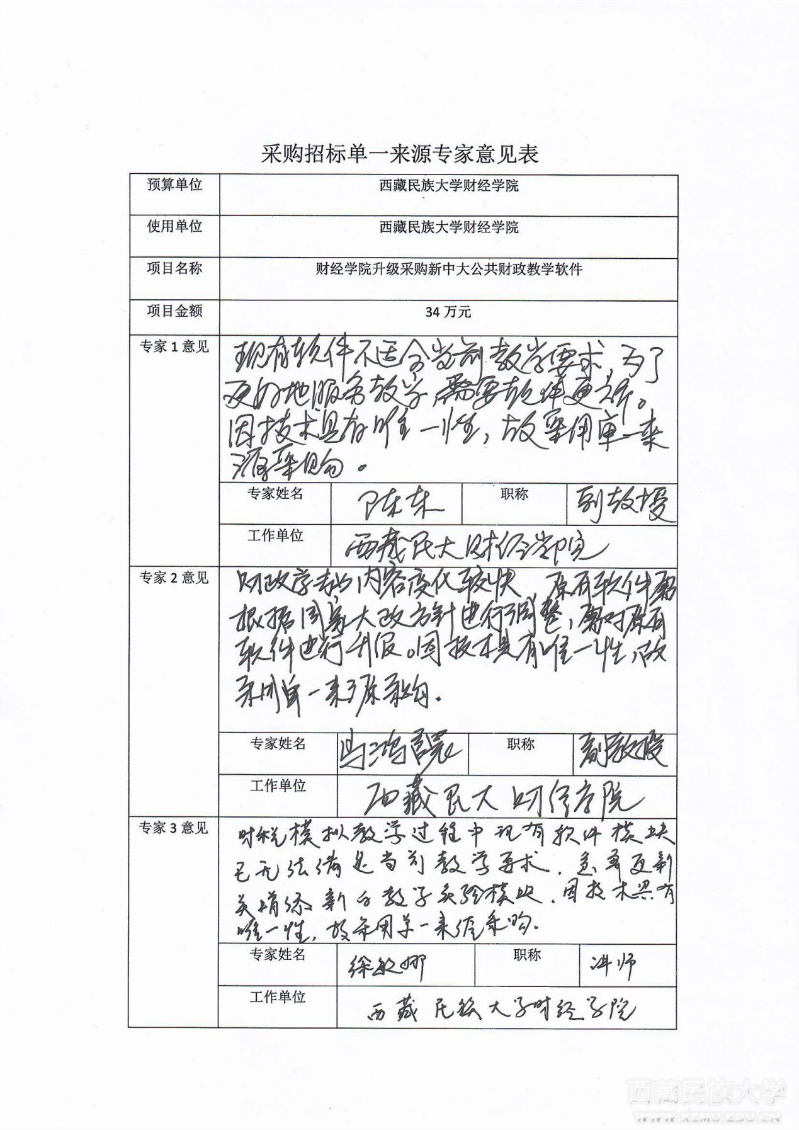 采购招标单一来源专家意见表
预算单位 西藏民族大学财经学院
使用单位 西藏民族大学财经学院
项目名称 财经学院升级采购新中大公共财政教学软件
项目金额 34 万元
专家 1 意见
现有软件不适合当前教学要求，为了
更好地服务教学，需要软件更新。
因技术具有唯一性，故采用单一来
源采购。
专家姓名 陈东 职称 副教授
工作单位 西藏民大财经学院
专家 2 意见
财政学科内容变化较快，原有软件需
根据国家大政方针进行调整，需对原有
软件进行升级。因技术具有唯一性，故
采用单一来源采购。
专家姓名 职称 副教授
工作单位 西藏民大财经学院
专家 3 意见
财税模拟教学过程中现有软件模块
已无法满足当前教学要求，需要更新
并增添新的教学实验模块，因技术具有
唯一性，故采用单一来源采购。
专家姓名 徐敏娜 职称 讲师
工作单位 西藏民族大学财经学院
西藏民族大学
WWW.XZMU.EDU.CN